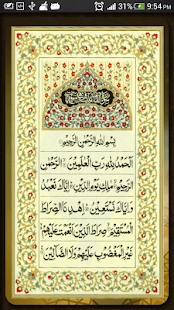 9:54 PM
بِسْمِ اللهِ الرَّحْمٰنِ الرَّحِيْمِ
اَلْحَمْدُ لِلّٰهِ رَبِّ الْعٰلَمِيْنَ الرَّحْمٰنِ
الرَّحِيْمِ مٰلِكِ يَوْمِ الدِّيْنِ اِيَّاكَ نَعْبُدُ
وَاِيَّاكَ نَسْتَعِيْنُ اِهْدِنَا الصِّرَاطَ
الْمُسْتَقِيْمَ صِرَاطَ الَّذِيْنَ اَنْعَمْتَ عَلَيْهِمْ
غَيْرِ الْمَغْضُوْبِ عَلَيْهِمْ وَلَا الضَّالِّيْنَ